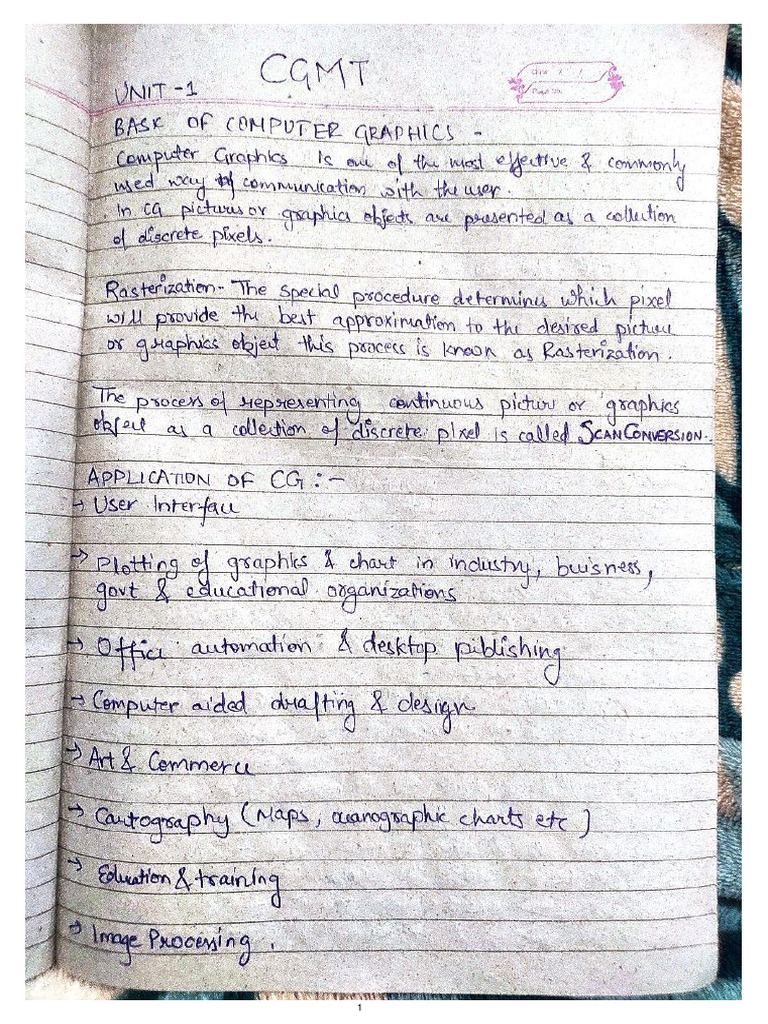 CGMT
UNIT -1
BASK OF COMPUTER GRAPHICS -
Computer Graphics is one of the most effective & commonly
used way of communication with the user.
In CG pictures or graphics objects are presented as a collection
of discrete pixels.
Rasterization - The special procedure determines which pixel
will provide the best approximation to the desired picture
or graphics object this process is known as Rasterization.
The process of representing continuous picture or graphics
object as a collection of discrete pixel is called SCAN CONVERSION.
APPLICATION OF CG :-
→ User Interface
→ Plotting of graphics & chart in industry, buisness,
govt & educational organizations
→ Office automation & desktop publishing
→ Computer aided drafting & design
→ Art & Commerce
→ Cartography (Maps, oceanographic charts etc)
→ Education & training
→ Image Processing.
1